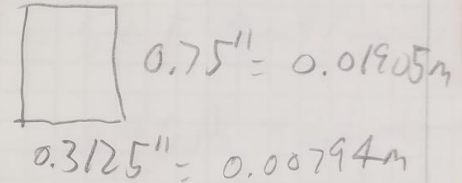 0.75" = 0.01905m
0.3125" = 0.00794m